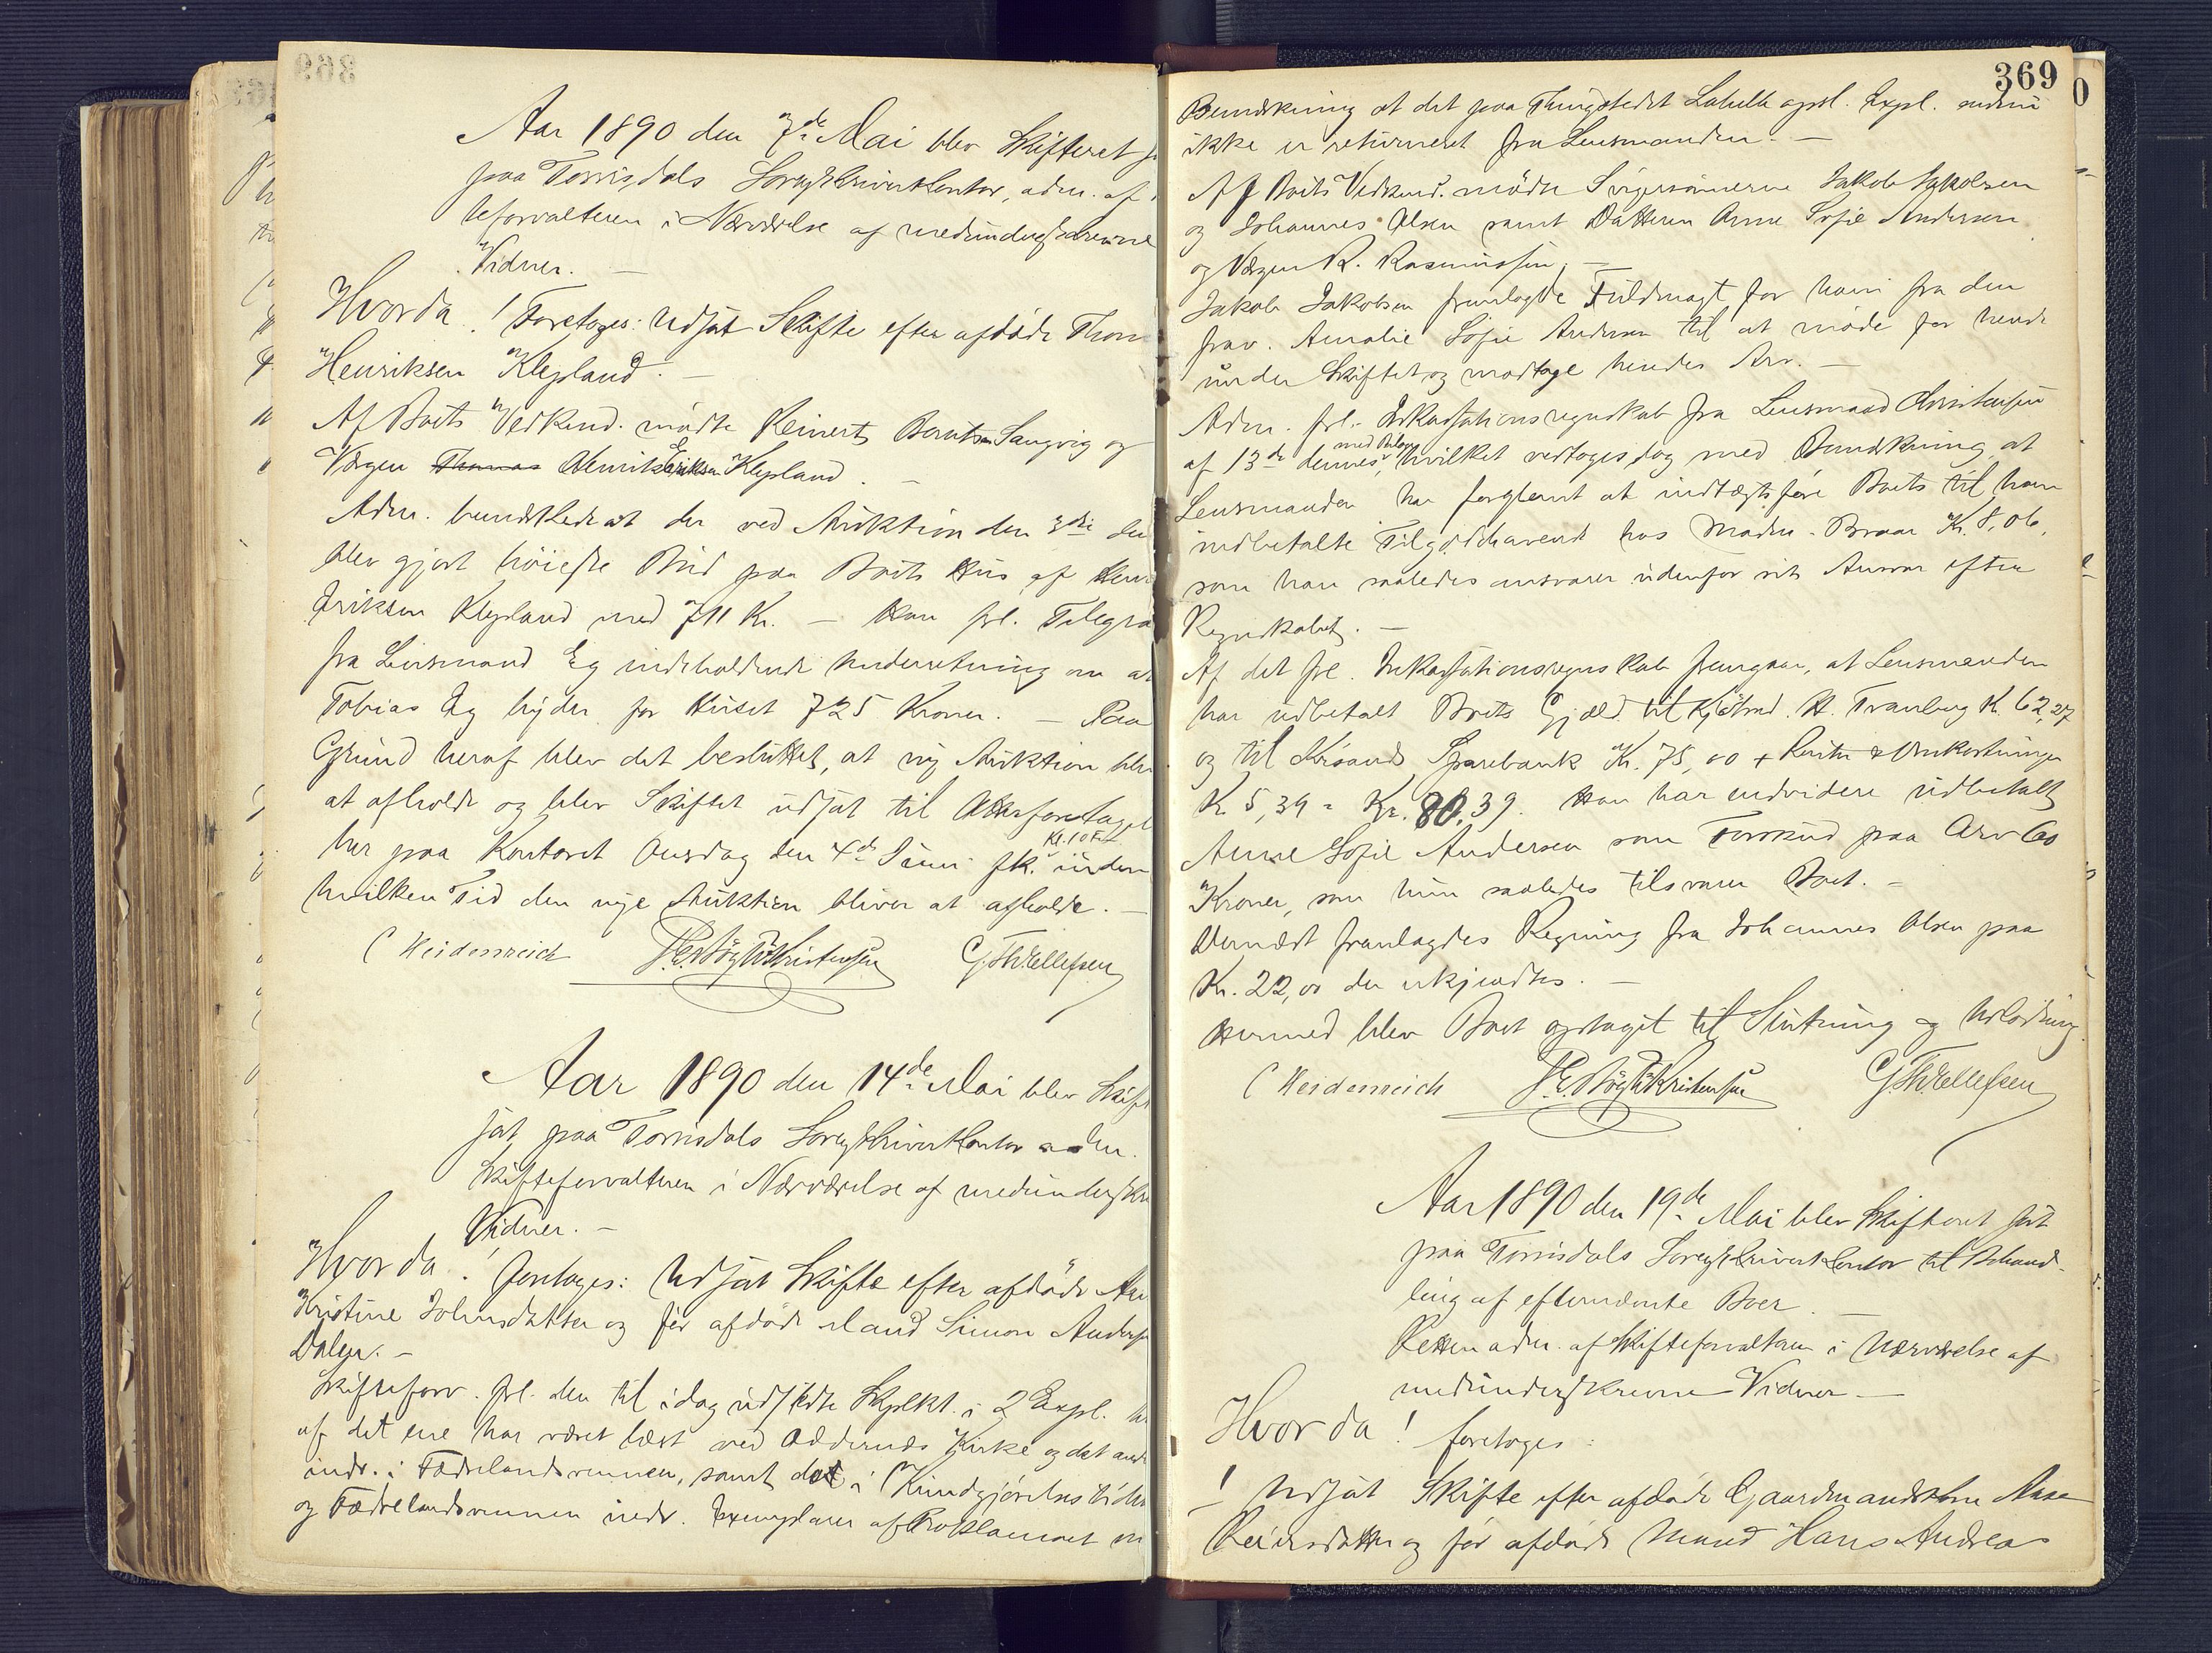 Aar 1890 den 7de Mai blev Skifteret
paa Torrisdals Sorenskriverkontor, adm. af
teforvalteren i Nærværelse af medunderskrevne
Vidner. —
Hvorda! Foretoges: Udsat Skifte efter afdøde Thom
Henriksen Klepland. —
Af Boets Vedkend. mødte Reinert Berntsen Langvig og
Værgen Thomas Henrik Eriksen Klepland. —
Adm. bemærkede at der ved Auktion den 3die de
blev gjort høieste Bud paa Boets Hus af Hen
Eriksen Klepland med 711 Kr. — Han frl. Telegra
fra Lensmand Eg indeholdende Underretning om at
Tobias Eg byder for Huset 725 Kroner. — Paa
Grund heraf blev det besluttet, at ny Auktion bli
at afholde og blev Skiftet udsat til Atterforetagel
her paa Kontoret Onsdag den 4de Juni fk. Kl. 10 F inden
hvilken Tid den nye Auktion bliver at afholde. —
C Heidenreich Kristensen G. Th. Ellefsen
Aar 1890 den 14de Mai blev Skift
sat paa Torrisdals Sorenskriverkontor adm.
Skifteforvalteren i Nærværelse af medunderskr
Vidner. —
Hvorda! Foretoges: Udsat Skifte efter afdøde An
Kristine Johnsdatter og før afdøde Mand Simon Anders
Dalen. —
Skifteforv. frl. den til idag udstedte Skplkt. i 2 Expl. h
af det ene har været læst ved Oddernæs Kirke og det and
indr. i Fædrelandsvennen, samt det i Kundgjørelsestid
og Fædrelandsvennen indr. Exemplarer af Proklamaet m
369
Bemærkning at det paa Thingstedet Lahelle opsl. Expl. endnu
ikke er returneret fra Lensmanden. —
Af Boets Vedkend. mødte Svigersønnerne Jakob Jakobsen
og Johannes Olsen samt Datteren Anne Sofie Andersen
og Værgen R. Rasmussen. —
Jakob Jakobsen fremlagde Fuldmagt for ham fra den
frav. Amalie Sofie Andersen til at møde for hende
under Skiftet og modtage hendes Arv. —
Adm. frl. Inkassationsregnskab fra Lensmand Christensen
af 13de dennes med Bilag, hvilket vedtoges dog med Bemærkning, at
Lensmanden har forglemt at indtægtsføre Boets til ham
indbetalte Tilgodehavende hos Madm. Braar Kr. 8,06,
som han saaledes ansvarer udenfor sit Ansvar efter
Regnskabet. —
Af det frl. Inkassationsregnskab fremgaar, at Lensmanden
har udbetalt Boets Gjæld til Kjøbmd. H. Tranberg K. 62,27
og til Krsands Sparebank Kr. 75,00 + Renter & Omkostninger
K. 5,39 = Kr. 80,39. Han har endvidere udbetalt
Anne Sofie Andersen som Forskud paa Arv 60
Kroner, som hun saaledes tilsvarer Boet. —
Dernæst fremlagdes Regning fra Johannes Olsen paa
Kr. 22,00 der erkjendtes. —
Hermed blev Boet optaget til Slutning og Udlodning
C Heidenreich Kristensen G. Th. Ellefsen
Aar 1890 den 19de Mai blev Skifteret sat
paa Torrisdals Sorenskriverkontor til Behand-
ling af efternævnte Boer. —
Retten adm. af Skifteforvalteren i Nærværelse af
medunderskrevne Vidner —
Hvorda! foretoges:
1 Udsat Skifte efter afdøde Gaardmandskone Aase
Reiersdatter og før afdøde Mand Hans Andreas